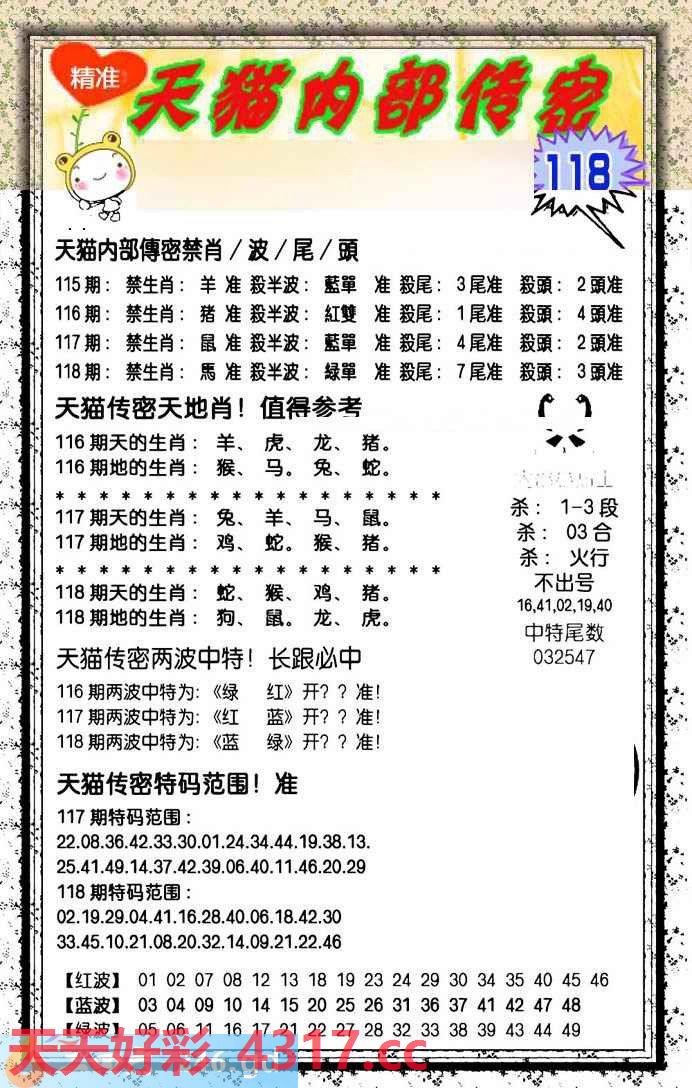 精准
天猫内部传密
118
天猫内部傳密禁肖/波/尾/頭
115期: 禁生肖: 羊 准 殺半波: 藍單 准 殺尾: 3尾准 殺頭: 2頭准
116期: 禁生肖: 猪 准 殺半波: 紅雙 准 殺尾: 1尾准 殺頭: 4頭准
117期: 禁生肖: 鼠 准 殺半波: 藍單 准 殺尾: 4尾准 殺頭: 2頭准
118期: 禁生肖: 馬 准 殺半波: 緑單 准 殺尾: 7尾准 殺頭: 3頭准
天猫传密天地肖! 值得参考
116期天的生肖: 羊、 虎、 龙、 猪。
116期地的生肖: 猴、 马。 兔、 蛇。
* * * * * * * * * * * * * * * * * *
117期天的生肖: 兔、 羊、 马、 鼠。
117期地的生肖: 鸡、 蛇。 猴、 猪。
* * * * * * * * * * * * * * * * * *
118期天的生肖: 蛇、 猴、 鸡、 猪。
118期地的生肖: 狗、 鼠。 龙、 虎。
杀: 1-3段
杀: 03合
杀: 火行
不出号
16,41,02,19,40
中特尾数
032547
天猫传密两波中特! 长跟必中
116期两波中特为:《绿 红》开? ? 准!
117期两波中特为:《红 蓝》开? ? 准!
118期两波中特为:《蓝 绿》开? ? 准!
天猫传密特码范围! 准
117期特码范围:
22.08.36.42.33.30.01.24.34.44.19.38.13.
25.41.49.14.37.42.39.06.40.11.46.20.29
118期特码范围:
02.19.29.04.41.16.28.40.06.18.42.30
33.45.10.21.08.20.32.14.09.21.22.46
【红波】 01 02 07 08 12 13 18 19 23 24 29 30 34 35 40 45 46
【蓝波】 03 04 09 10 14 15 20 25 26 31 36 37 41 42 47 48
【绿波】 05 06 11 16 17 21 22 27 28 32 33 38 39 43 44 49
天天好彩 4317.cc